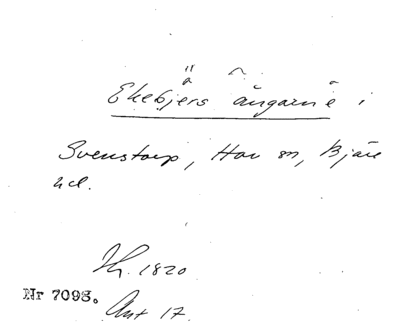 Ekebjers ängarne i
Svenstorp, Hov sn, Bjäre
hd.
Th. 1820
Nr 7098. Ant 17.